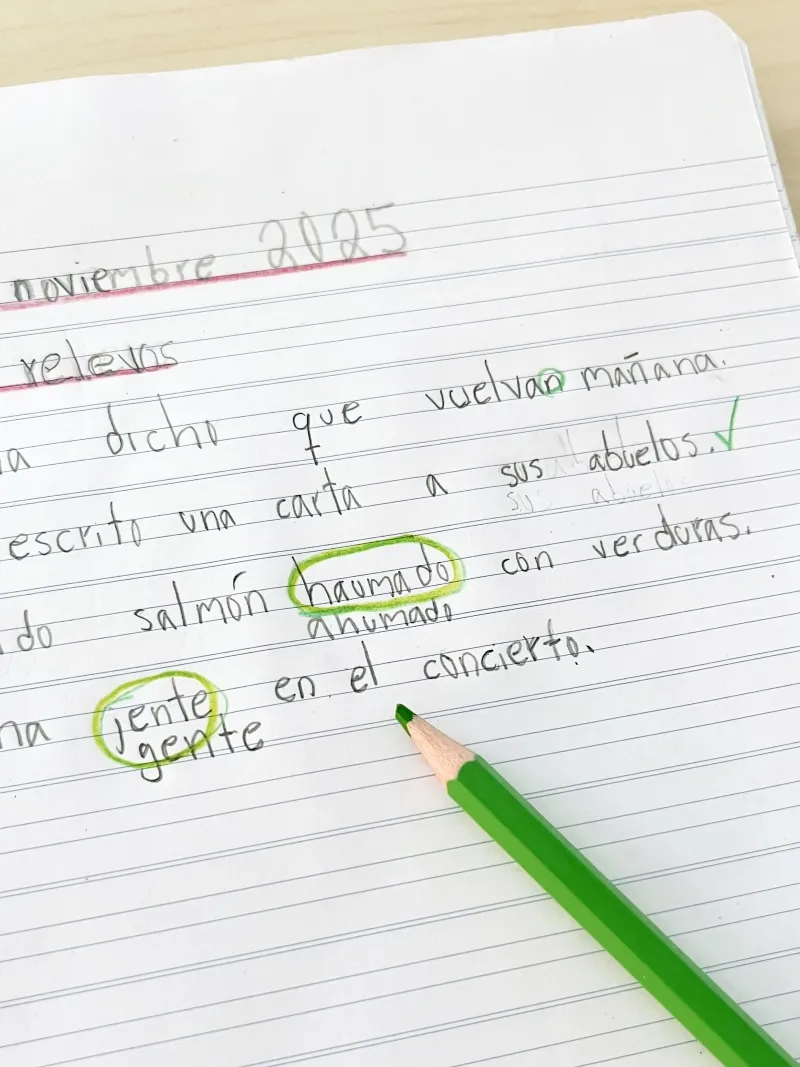 noviembre 2025
relevos
a dicho que vuelvan mañana.
escrito una carta a sus abuelos.
sus abuelo
do salmón haumado con verduras.
ahumado
na jente en el concierto.
gente